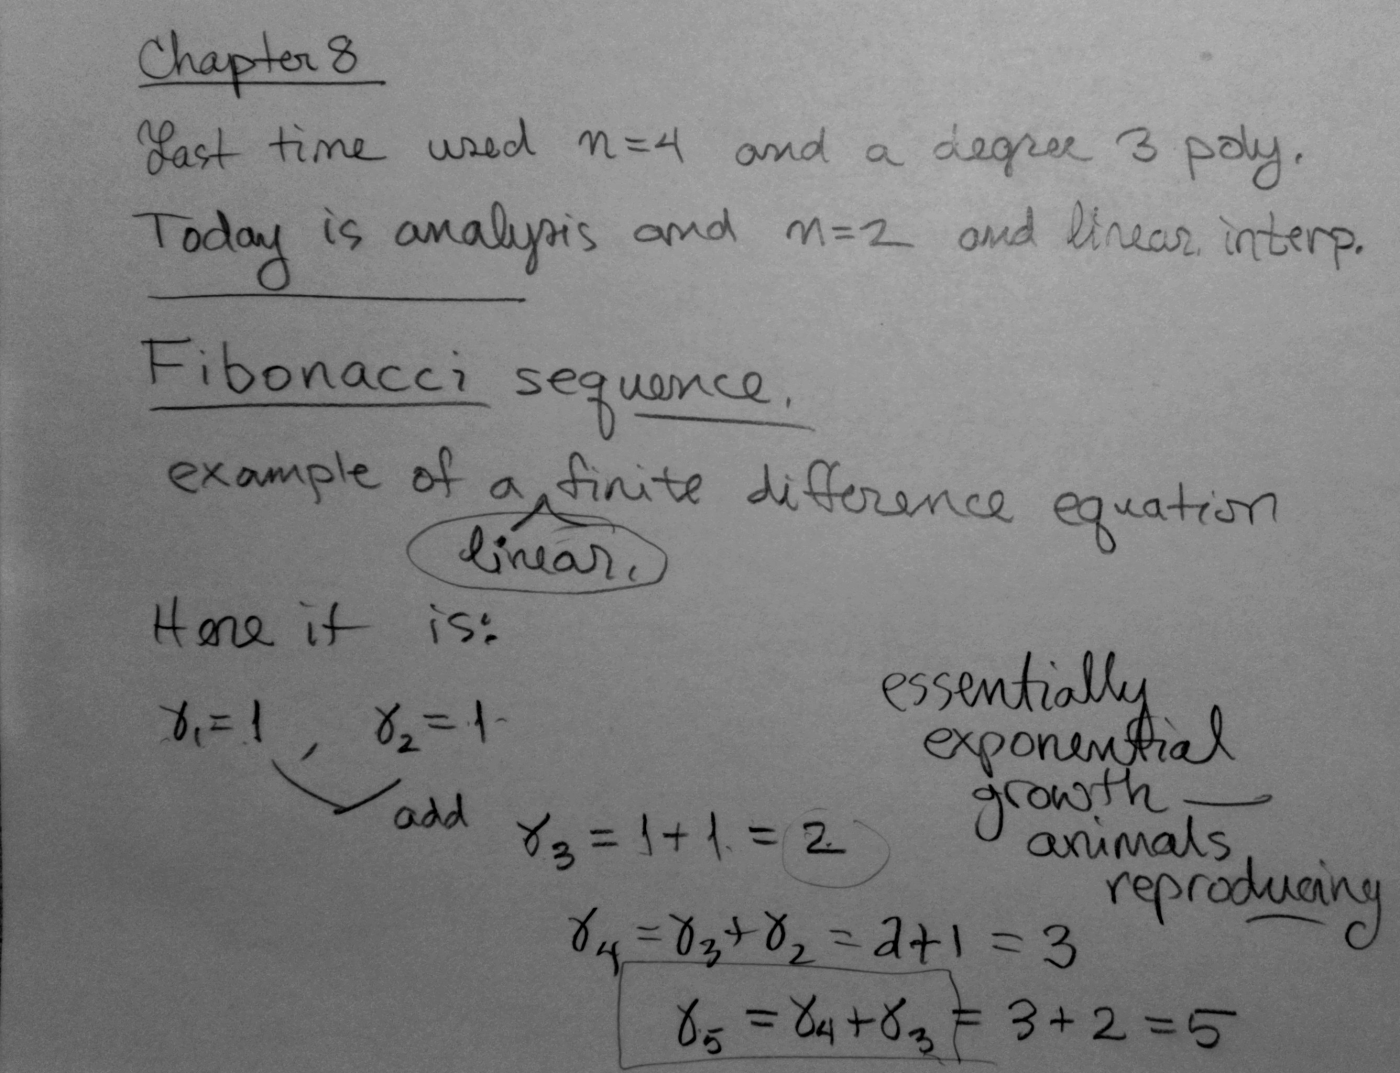 Chapter 8
Last time used n=4 and a degree 3 poly.
Today is analysis and n=2 and linear interp.
Fibonacci sequence.
example of a finite difference equation
linear.
Here it is:
γ₁=1 , γ₂=1
add
γ₃ = 1+1 = 2
essentially
exponential
growth —
animals
reproducing
γ₄ = γ₃+γ₂ = 2+1 = 3
γ₅ = γ₄+γ₃ = 3+2 = 5